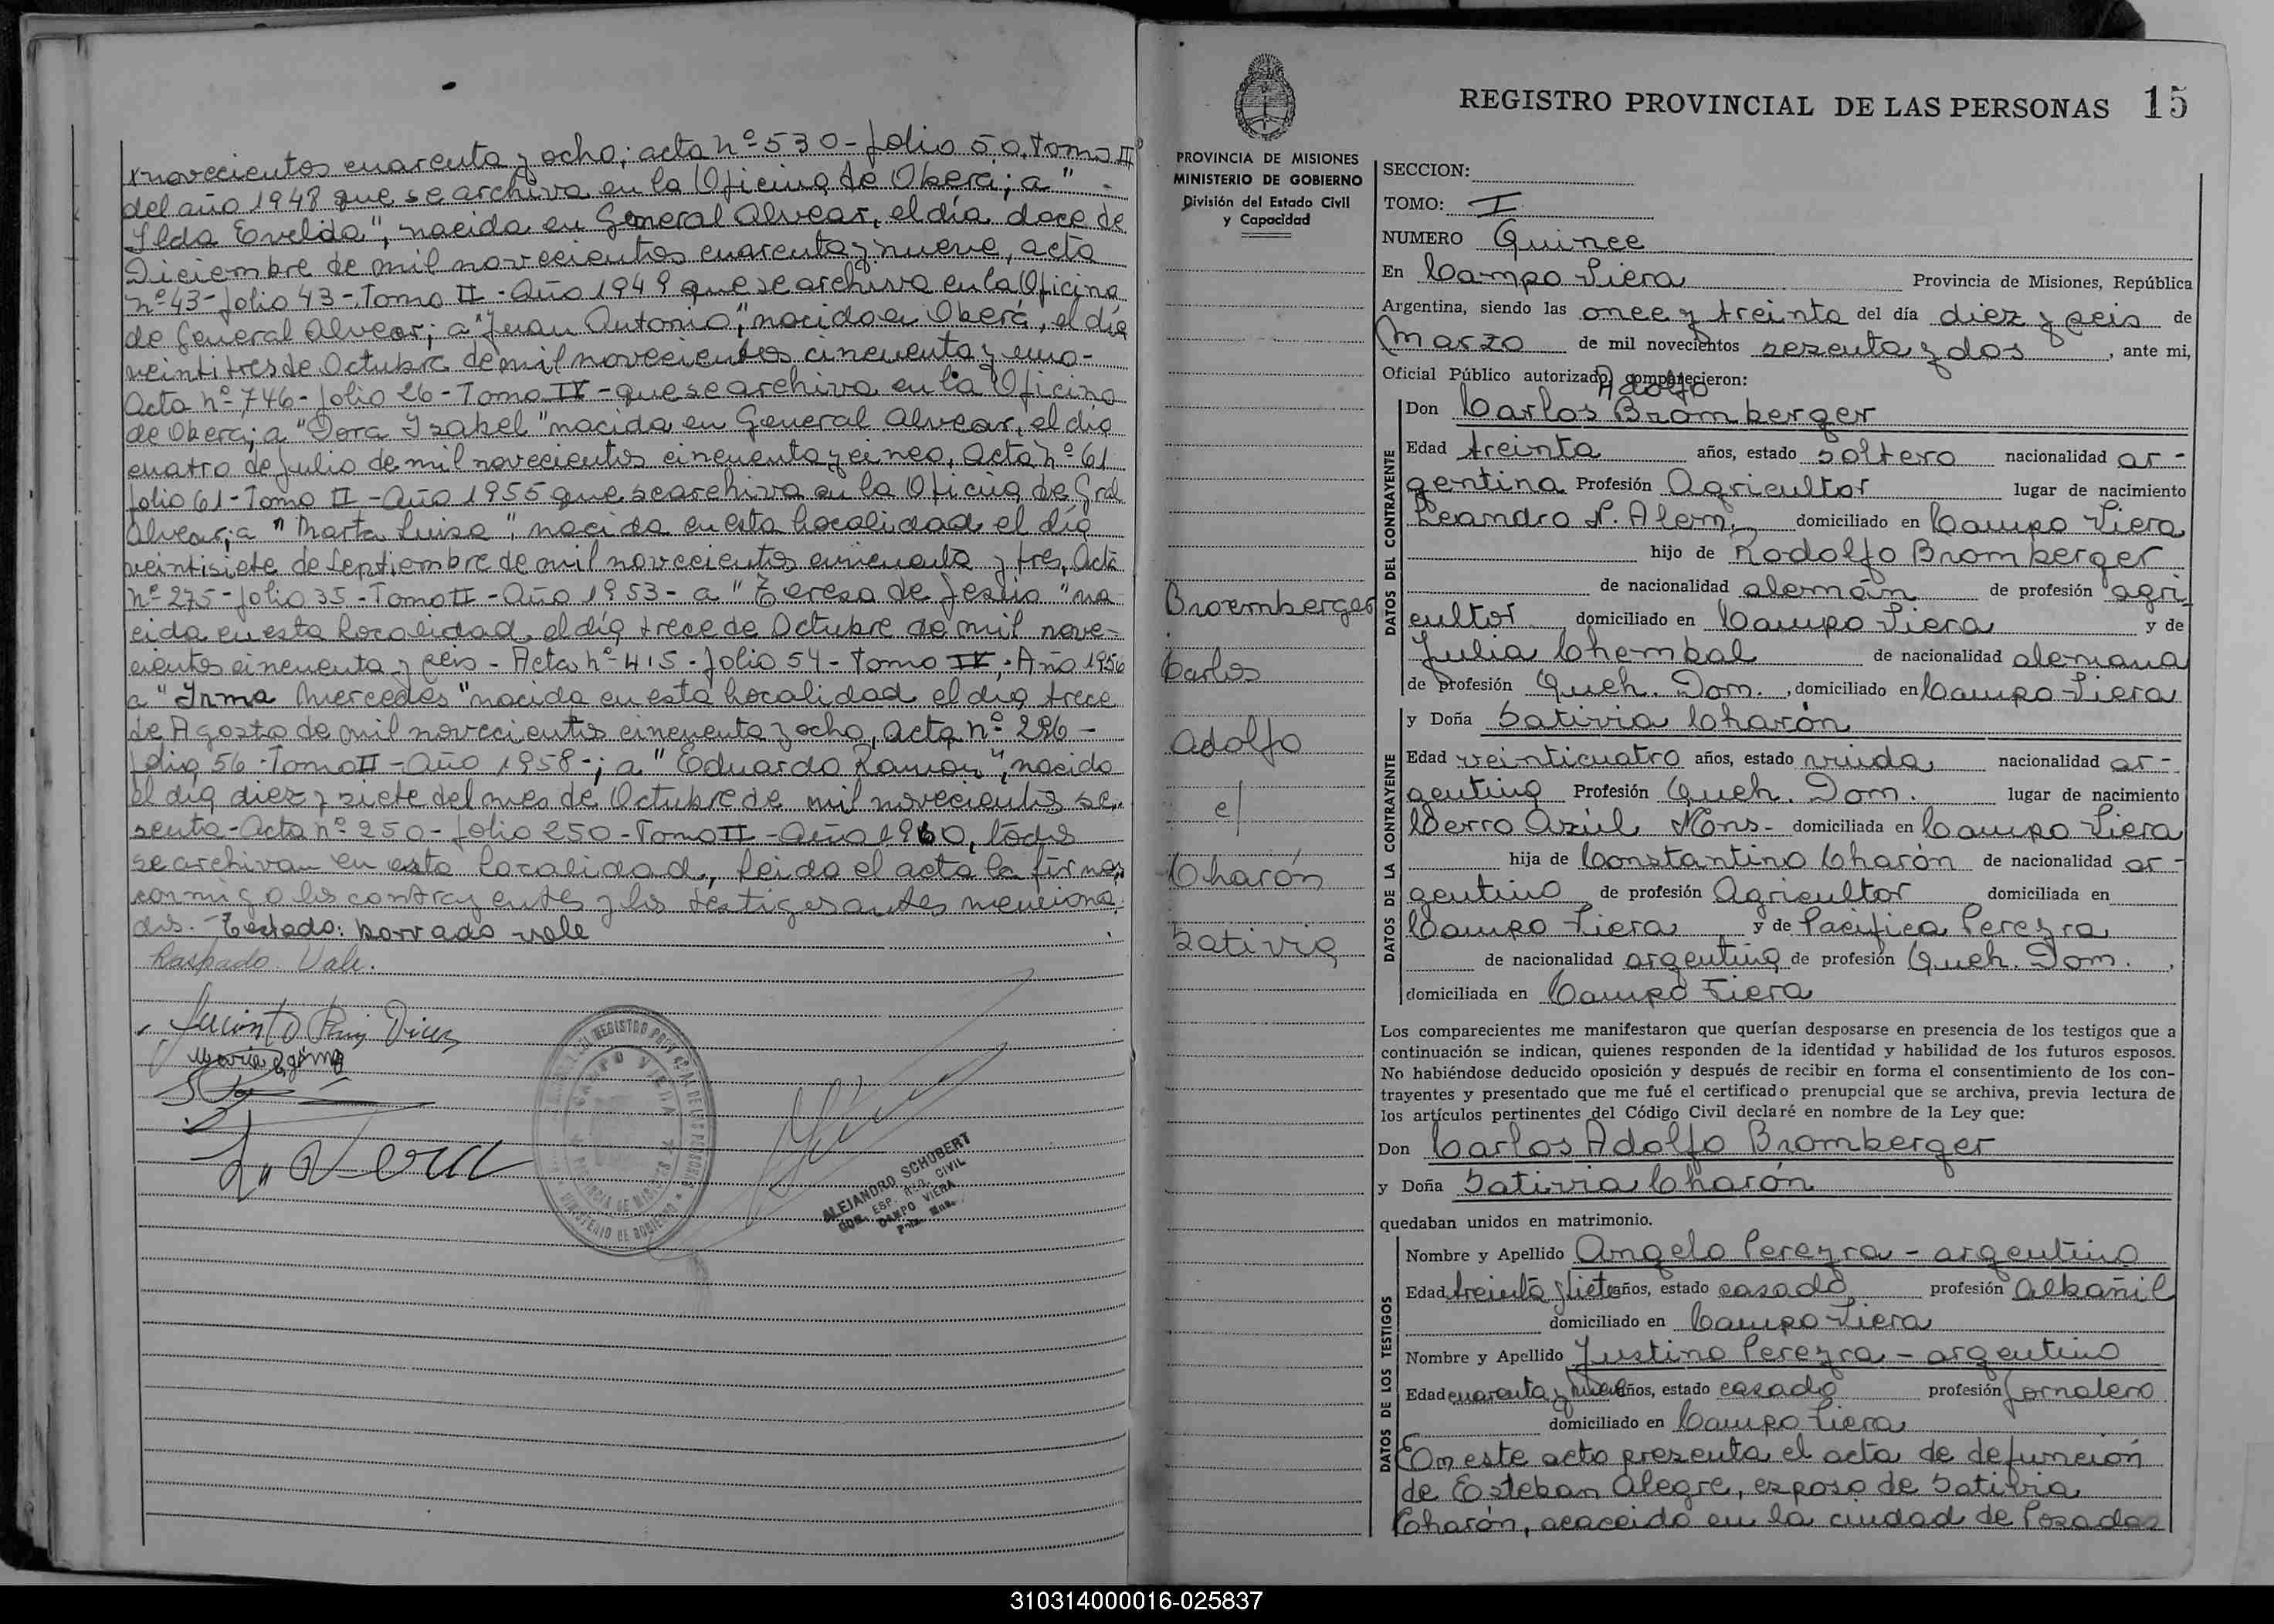 novecientos cuarenta y ocho; acta nº 530 - folio 50. Tomo II
del año 1948 que se archiva en la Oficina de Oberá; a "
Ilda Evelda", nacida en General Alvear, el día doce de
Diciembre de mil novecientos cuarenta y nueve, acta
nº 43 - folio 43 - Tomo II - Año 1949 que se archiva en la Oficina
de General Alvear; a "Juan Antonio", nacido en Oberá, el día
veintitres de Octubre de mil novecientos cincuenta y uno -
Acta nº 746 - folio 26 - Tomo IV - que se archiva en la Oficina
de Oberá; a "Dora Isabel" nacida en General Alvear, el día
cuatro de Julio de mil novecientos cincuenta y cinco, Acta nº 61
folio 61 - Tomo II - Año 1955 que se archiva en la Oficina de Gral
Alvear; a "Marta Luisa", nacida en esta localidad el día
veintisiete de Septiembre de mil novecientos cincuenta y tres, Acta
nº 275 - folio 35 - Tomo II - Año 1953 - a "Teresa de Jesús" na
cida en esta localidad, el día trece de Octubre de mil nove-
cientos cincuenta y seis - Acta nº 415 - folio 54 - Tomo IV - Año 1956
a "Irma Mercedes" nacida en esta localidad el día trece
de Agosto de mil novecientos cincuenta y ocho, acta nº 286 -
folio 56 - Tomo II - Año 1958 -; a "Eduardo Ramon", nacido
el día diez y siete del mes de Octubre de mil novecientos se-
senta - Acta nº 250 - folio 250 - Tomo II - Año 1960, todos
se archivan en esta localidad, leida el acta la firman
conmigo los contrayentes y los testigos antes menciona-
dos. - Testado: borrado vale
Raspado. Vale.
REGISTRO
CAMPO VIERA
PROVINCIA DE MISIONES
MINISTERIO DE GOBIERNO
ALEJANDRO SCHUBERT
CIVIL
CAMPO VIERA
REGISTRO PROVINCIAL DE LAS PERSONAS 15
PROVINCIA DE MISIONES
MINISTERIO DE GOBIERNO
División del Estado Civil
y Capacidad
Broemberger
Carlos
Adolfo
c/
Charón
Sativia
SECCION:
TOMO: I
NUMERO Quince
En Campo Viera Provincia de Misiones, República
Argentina, siendo las once y treinta del día diez y seis de
Marzo de mil novecientos sesenta y dos, ante mi,
Oficial Público autorizado, comparecieron:
Adolfo
DATOS DEL CONTRAYENTE
Don Carlos Bromberger
Edad treinta años, estado soltero nacionalidad ar-
gentina Profesión Agricultor lugar de nacimiento
Leandro N. Alem, domiciliado en Campo Viera
hijo de Rodolfo Bromberger
de nacionalidad alemán de profesión agri
cultor domiciliado en Campo Viera y de
Julia Chembal de nacionalidad alemana
de profesión Queh. Dom., domiciliado en Campo Viera
DATOS DE LA CONTRAYENTE
y Doña Sativia Charón
Edad veinticuatro años, estado viuda nacionalidad ar-
gentina Profesión Queh. Dom. lugar de nacimiento
Cerro Azúl Mons - domiciliada en Campo Viera
hija de Constantino Charón de nacionalidad ar-
gentino de profesión Agricultor domiciliada en
Campo Viera y de Pacífica Pereyra
de nacionalidad argentina de profesión Queh. Dom.,
domiciliada en Campo Viera
Los comparecientes me manifestaron que querían desposarse en presencia de los testigos que a
continuación se indican, quienes responden de la identidad y habilidad de los futuros esposos.
No habiéndose deducido oposición y después de recibir en forma el consentimiento de los con-
trayentes y presentado que me fué el certificado prenupcial que se archiva, previa lectura de
los artículos pertinentes del Código Civil declaré en nombre de la Ley que:
Don Carlos Adolfo Bromberger
y Doña Sativia Charón
quedaban unidos en matrimonio.
DATOS DE LOS TESTIGOS
Nombre y Apellido Angelo Pereyra - argentino
Edad treinta y siete años, estado casado profesión Albañil
domiciliado en Campo Viera
Nombre y Apellido Justino Pereyra - argentino
Edad cuarenta y nueve años, estado casado profesión Jornalero
domiciliado en Campo Viera
En este acto presenta el acta de defunción
de Esteban Alegre, esposo de Sativia
Charón, acaecido en la ciudad de Posadas
310314000016-025837